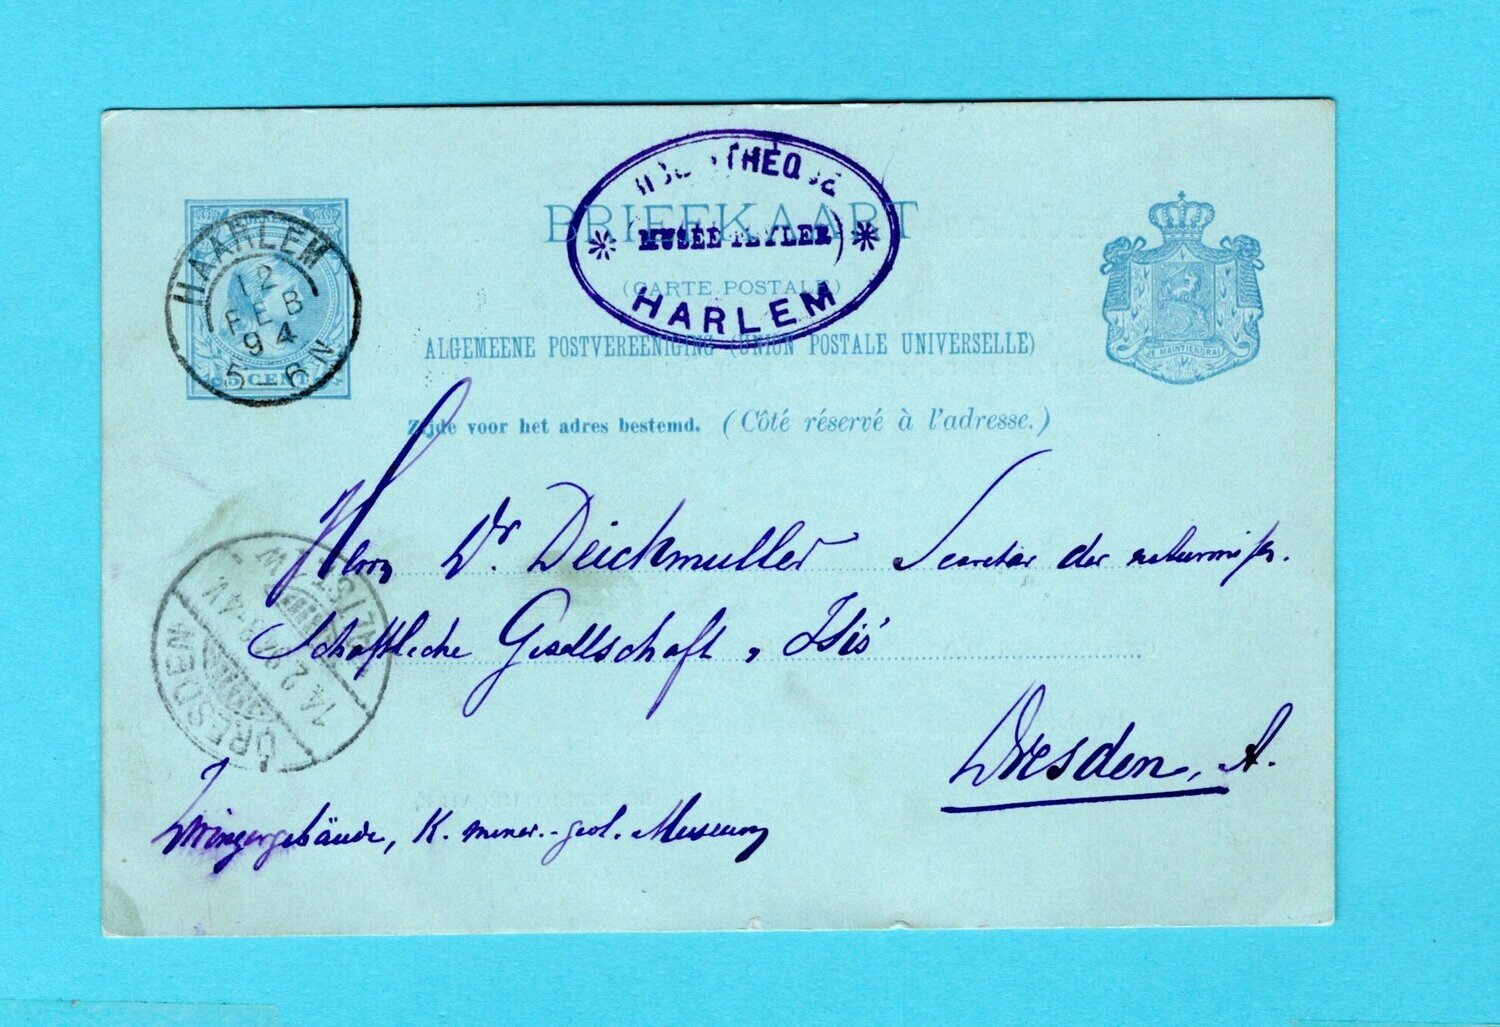 BRIEFKAART
(CARTE POSTALE)
ALGEMEENE POSTVEREENIGING (UNION POSTALE UNIVERSELLE)
Zijde voor het adres bestemd. (Côté réservé à l'adresse.)
MUSÉE TEYLER
HARLEM
HAARLEM
12
FEB
94
5-6N
5 CENT
JE MAINTIENDRAI
Herrn Dr. Deichmuller Secretär der naturwiss.
schaftliche Gesellschaft „Isis"
Dresden, A.
Zwingergebäude, K. miner.-geol. Museum
DRESDEN
ALTST.
14.2.94